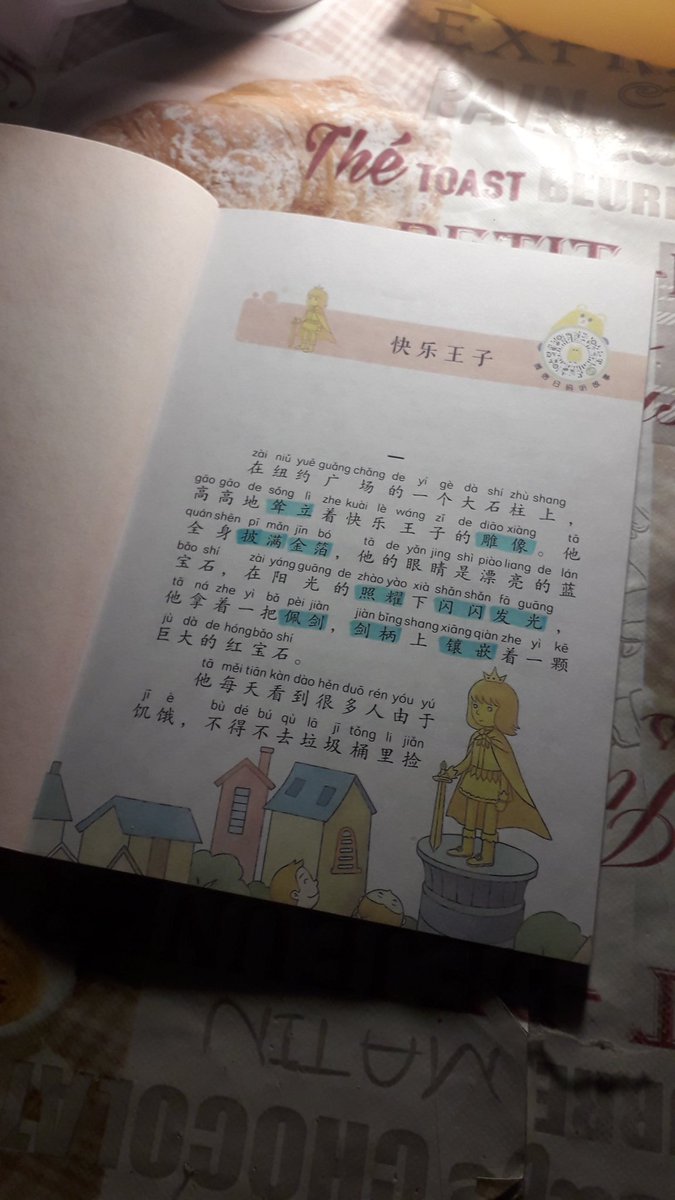 Thé TOAST
快乐王子
一
zài niǔ yuē guǎng chǎng de yí gè dà shí zhù shang
在纽约广场的一个大石柱上，
gāo gāo de sǒng lì zhe kuài lè wáng zǐ de diāo xiàng tā
高高地耸立着快乐王子的雕像。他
quán shēn pī mǎn jīn bó tā de yǎn jing shì piào liang de lán
全身披满金箔，他的眼睛是漂亮的蓝
bǎo shí zài yáng guāng de zhào yào xià shǎn shǎn fā guāng
宝石，在阳光的照耀下闪闪发光，
tā ná zhe yì bǎ pèi jiàn jiàn bǐng shang xiāng qiàn zhe yì kē
他拿着一把佩剑，剑柄上镶嵌着一颗
jù dà de hóng bǎo shí
巨大的红宝石。
tā měi tiān kàn dào hěn duō rén yóu yú
他每天看到很多人由于
jī è bù dé bú qù lā jī tǒng li jiǎn
饥饿，不得不去垃圾桶里捡